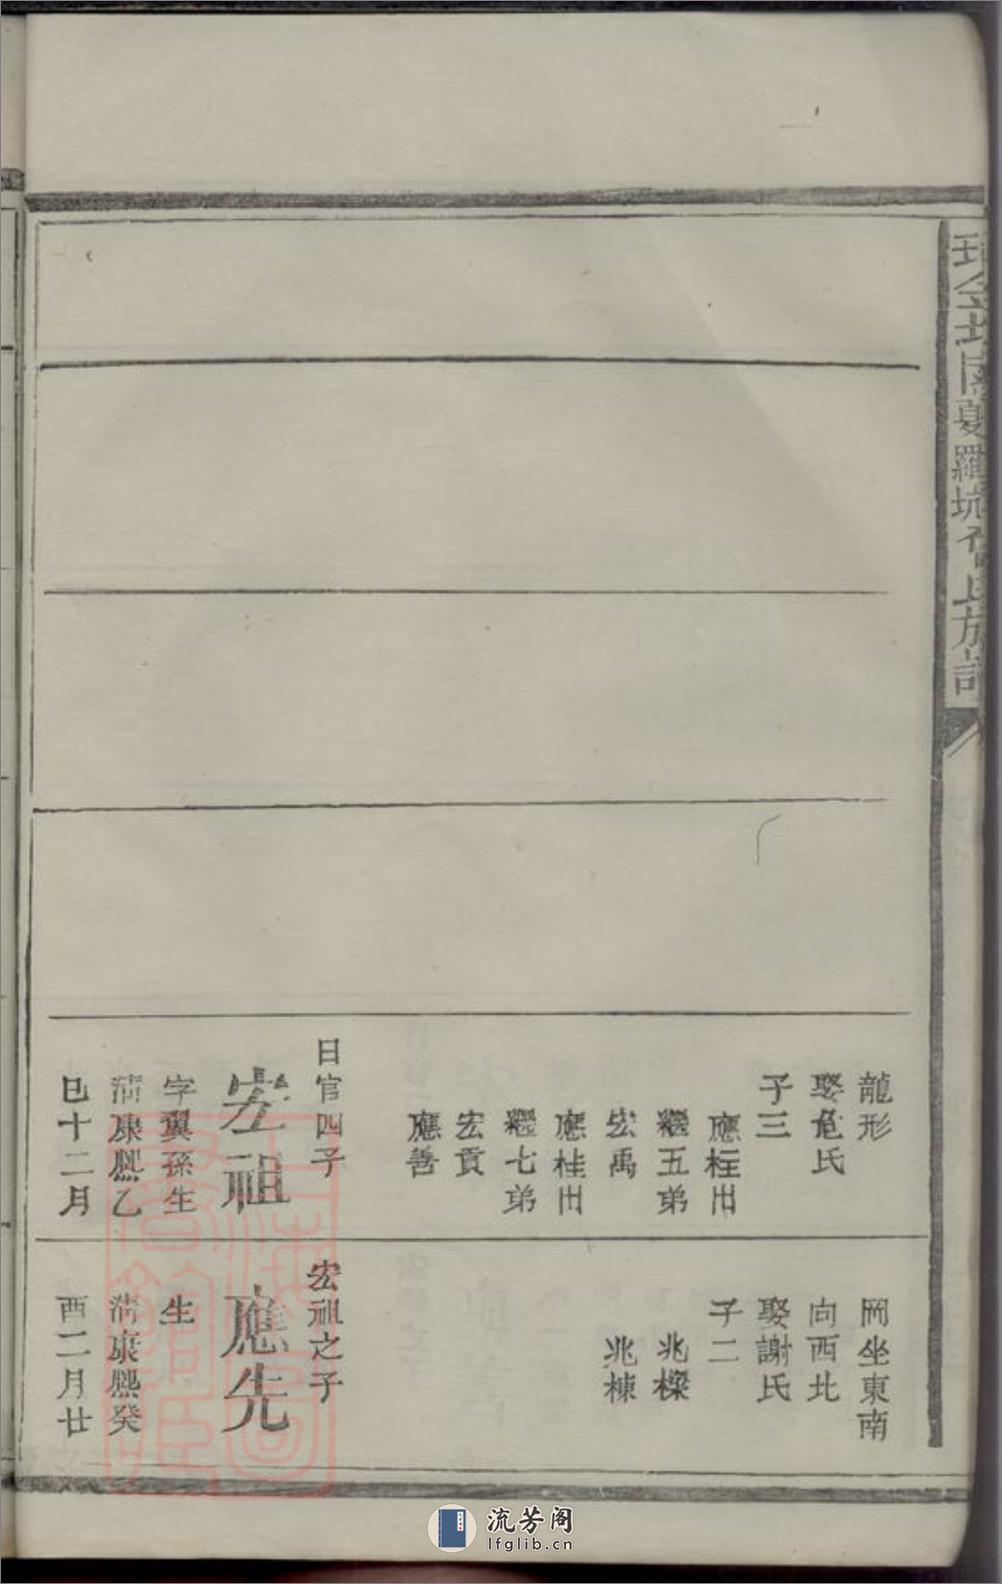 龍形
娶危氏
子三
應枉出
繼五弟
宏禹
應桂出
繼七弟
宏貢
應善
日官四子
宏祖
字翼孫生
清康熙乙
巳十二月
岡坐東南
向西北
娶謝氏
子二
兆樑
兆棟
宏祖之子
應先
生
清康熙癸
酉二月廿
流芳阁
lfglib.cn